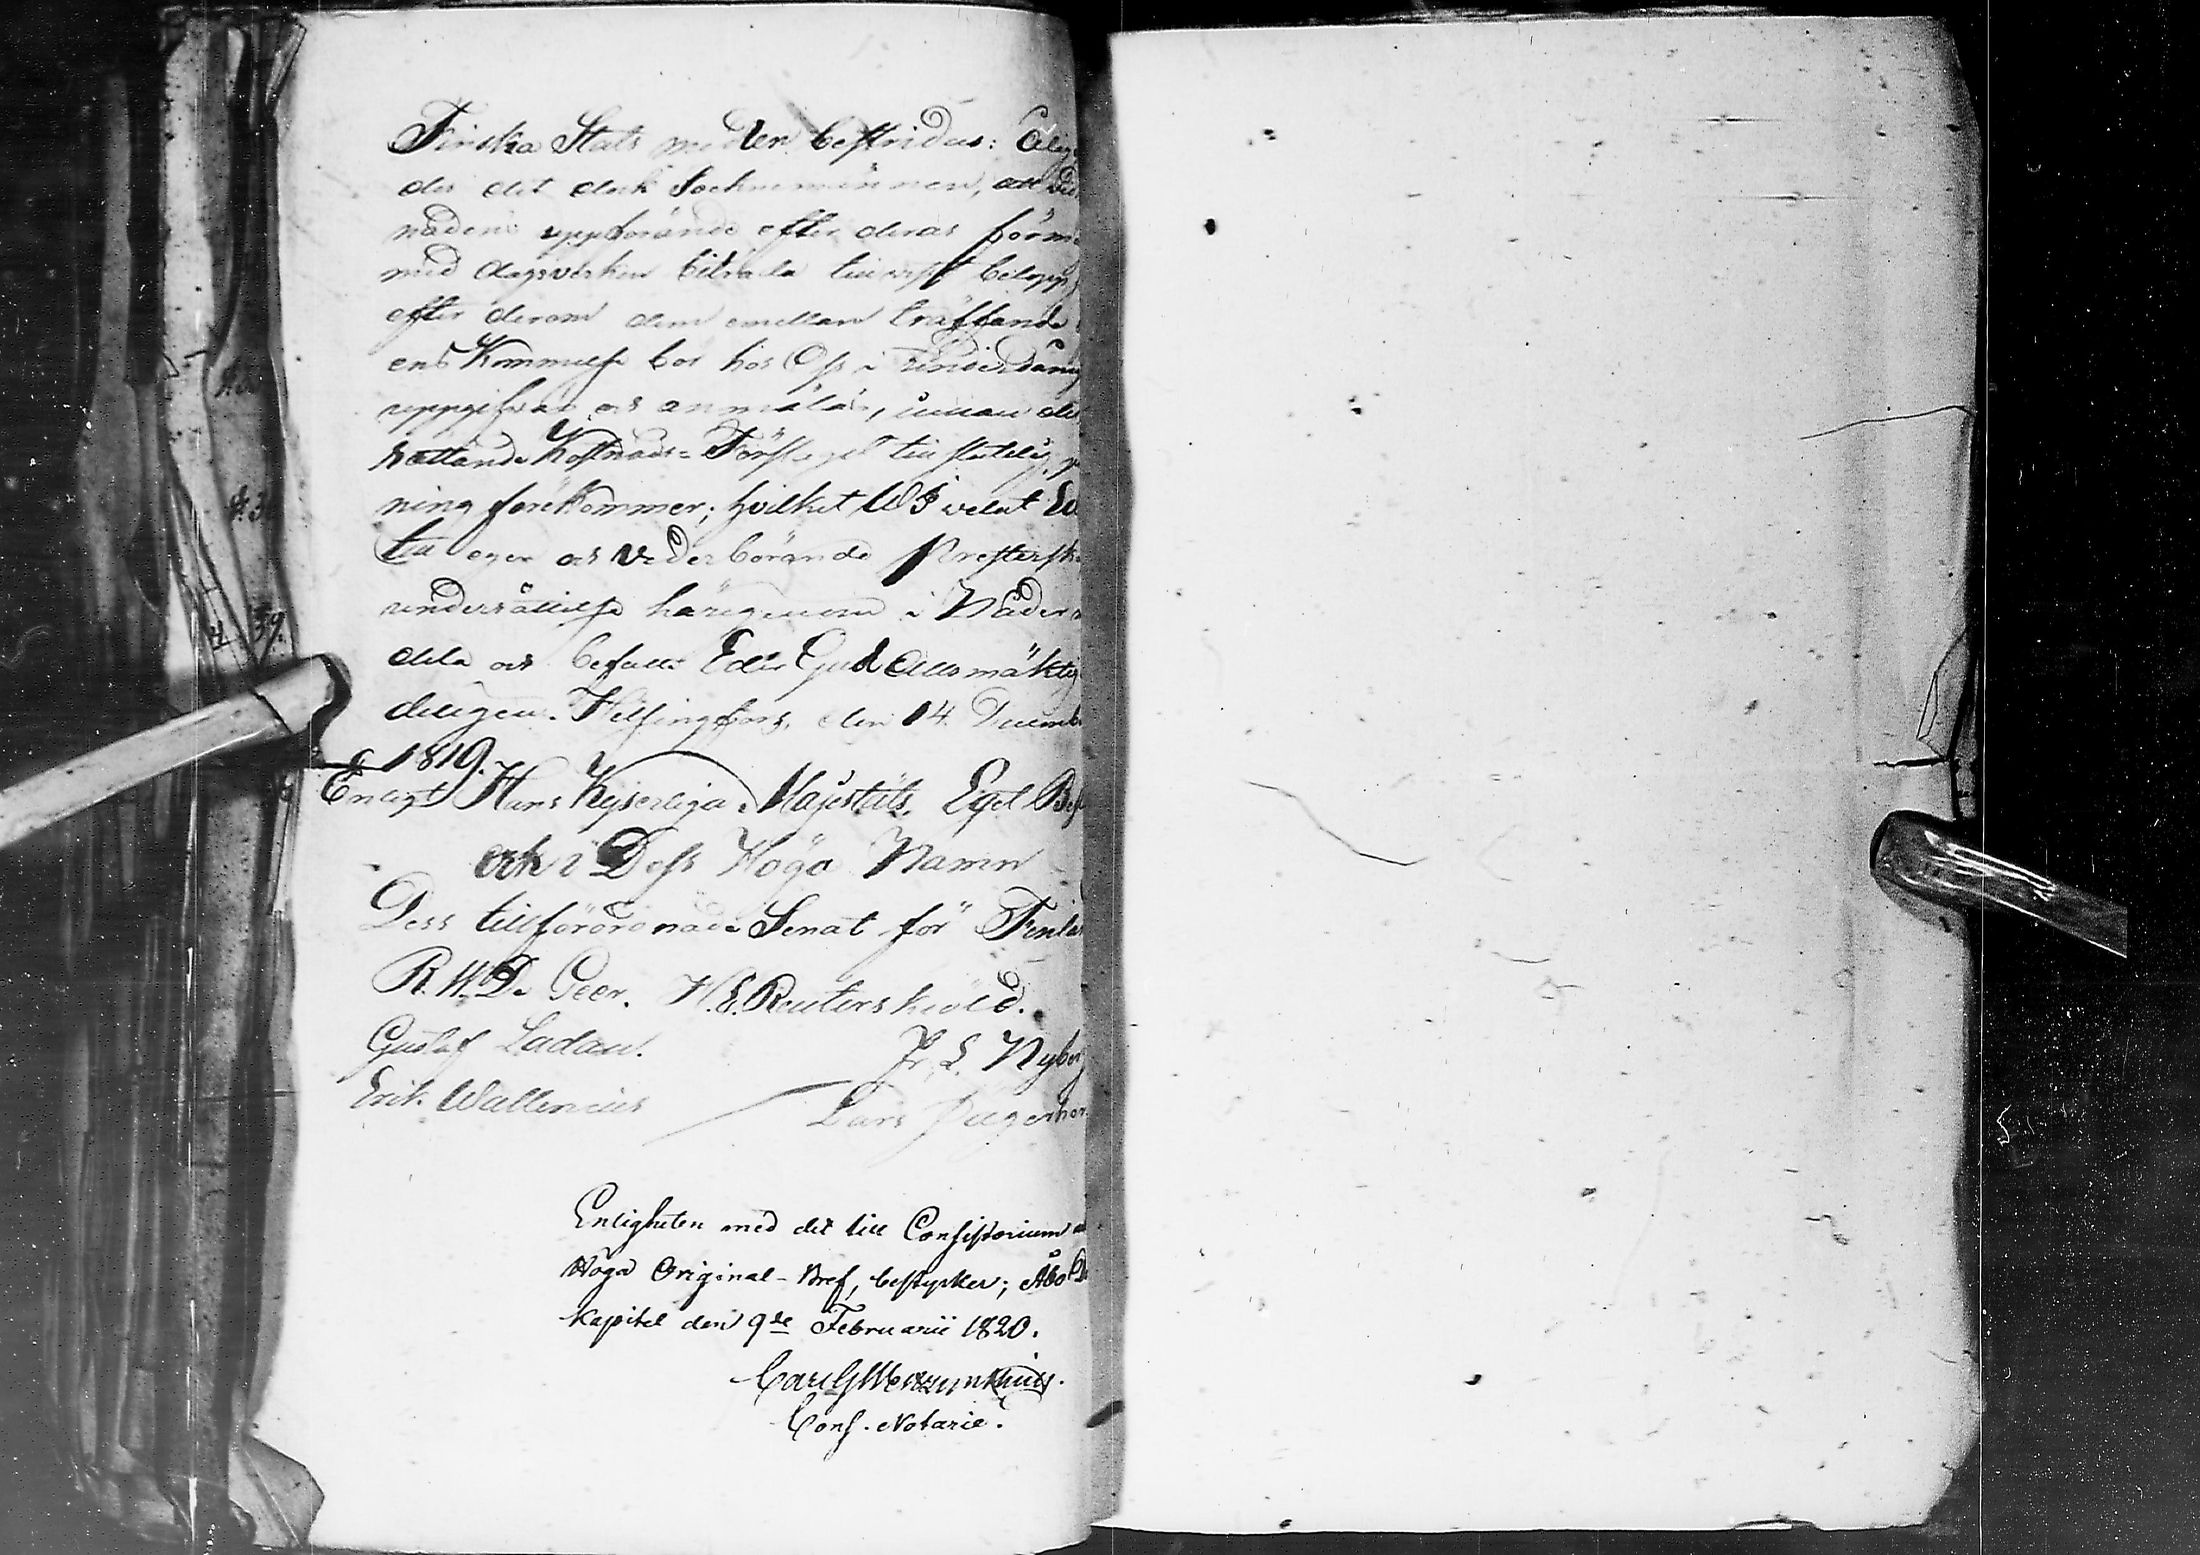 Finska Stats medlen bestridas: Ålig
der det dock Socknemännen, att
nadens uppförande efter deras förm
med dagsverken biträda till wisst belopp,
efter derom dem emellan träffande
enskommelse bör hos Oss i Underdånig
uppgifvas och anmälas, innan det
rättande Kostnads-Förslaget till slutelig
ning förekommer; hvilket Wi velat Ed
till egen och Vederbörande Presterska
underrättelse härigenom i Nåder
dela och befalle Eder Gud Allsmäktig
deligen. Helsingfors, den 14. Decemb
1819.
Enligt Hans Kejserliga Majestäts Eget Bef
och i Dess Höga Namn
Dess tillförordnade Senat för Finla
R. W. De Geer. H. E. Reuterskiöld.
Gustaf Ladau. Fr. L. Nyber
Erik Wallenius Lars
Enligheten med det till Consistorium
Höga Original-Bref, bestyrker; Åbo D
Kapitel den 9de Februarii 1820.
Carl G
Cons. Notarie.
H. 39.